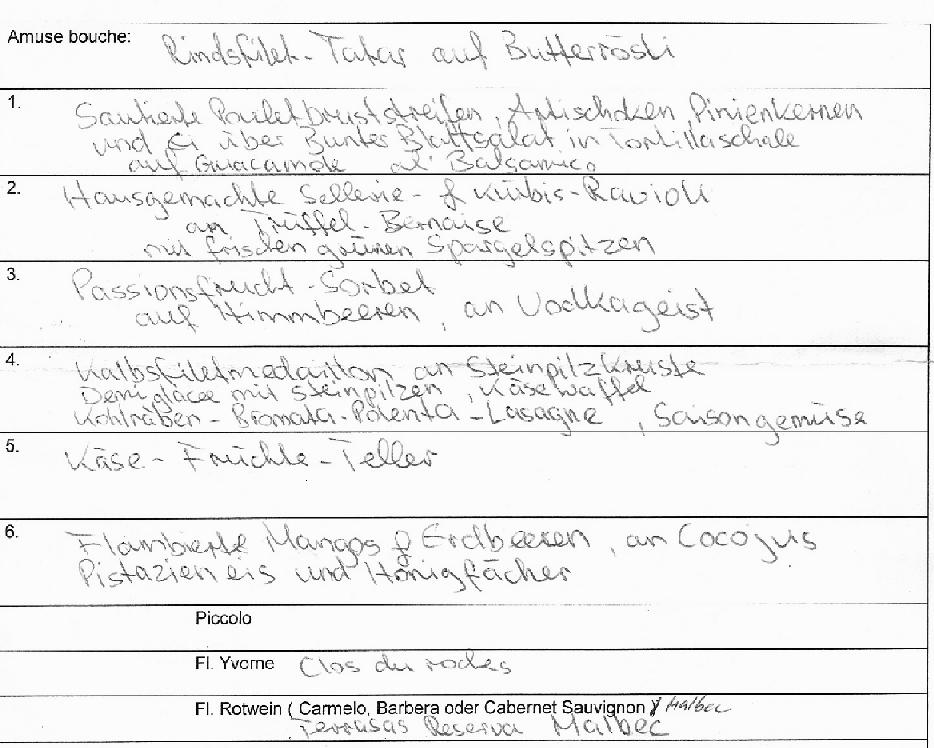 Amuse bouche: Rindsfilet-Tatar auf Butterrösti
1. Sautierte Pouletbruststreifen, Artischoken Pinienkernen
und Ei über Bunter Blattsalat, in Tortillaschale
auf Guacamole al' Balsamico
2. Hausgemachte Sellerie- & Kürbis-Ravioli
an Trüffel-Bernaise
mit frischen grünen Spargelspitzen
3. Passionsfrucht-Sorbet
auf Himmbeeren, an Vodkageist
4. Kalbsfiletmedaillon an Steinpilzkruste
Demiglace mit Steinpilzen, Käsewaffel
Kohlraben-Bramata-Polenta-Lasagne, Saisongemüse
5. Käse-Früchte-Teller
6. Flambierte Mangos & Erdbeeren, an Cocojus
Pistazieneis und Honigfächer
Piccolo
Fl. Yvorne Clos du roches
Fl. Rotwein ( Carmelo, Barbera oder Cabernet Sauvignon ) Malbec
Terrasas Reserva Malbec